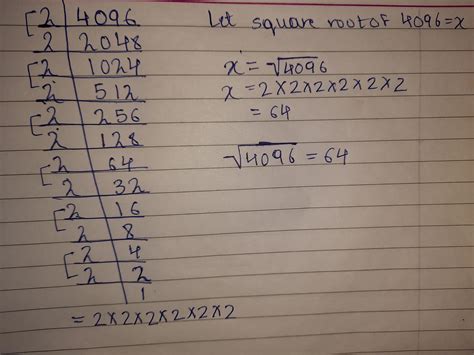 2 | 4096
2 | 2048
2 | 1024
2 | 512
2 | 256
2 | 128
2 | 64
2 | 32
2 | 16
2 | 8
2 | 4
2 | 2
1
= 2×2×2×2×2×2
Let square root of 4096=x
x = √4096
x = 2×2×2×2×2×2
= 64
√4096 = 64